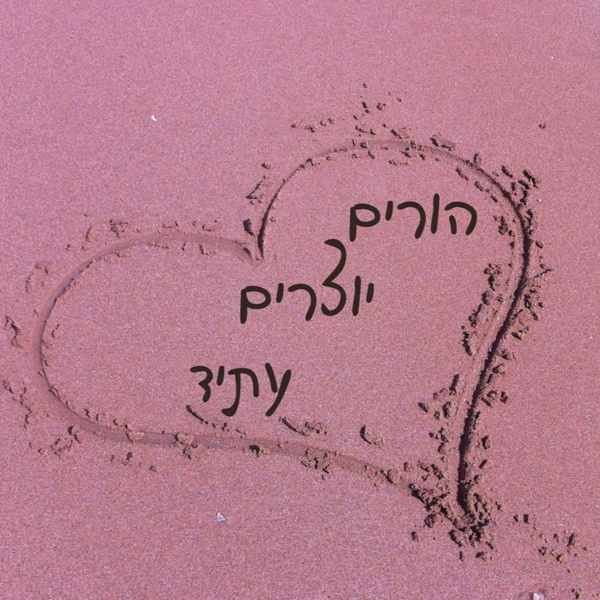 הורים
יוצרים
עתיד